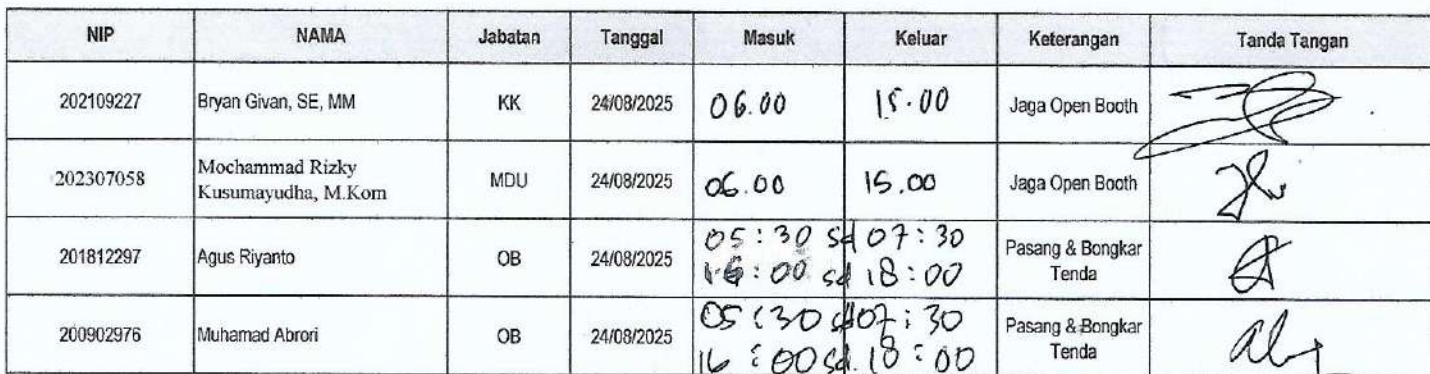 NIP NAMA Jabatan Tanggal Masuk Keluar Keterangan Tanda Tangan
202109227 Bryan Givan, SE, MM KK 24/08/2025 06.00 15.00 Jaga Open Booth
202307058 Mochammad Rizky Kusumayudha, M.Kom MDU 24/08/2025 06.00 15.00 Jaga Open Booth
201812297 Agus Riyanto OB 24/08/2025 05:30 sd 07:30 Pasang & Bongkar
16:00 sd 18:00 Tenda
200902976 Muhamad Abrori OB 24/08/2025 05:30 sd 07:30 Pasang & Bongkar
16:00 sd. 18:00 Tenda